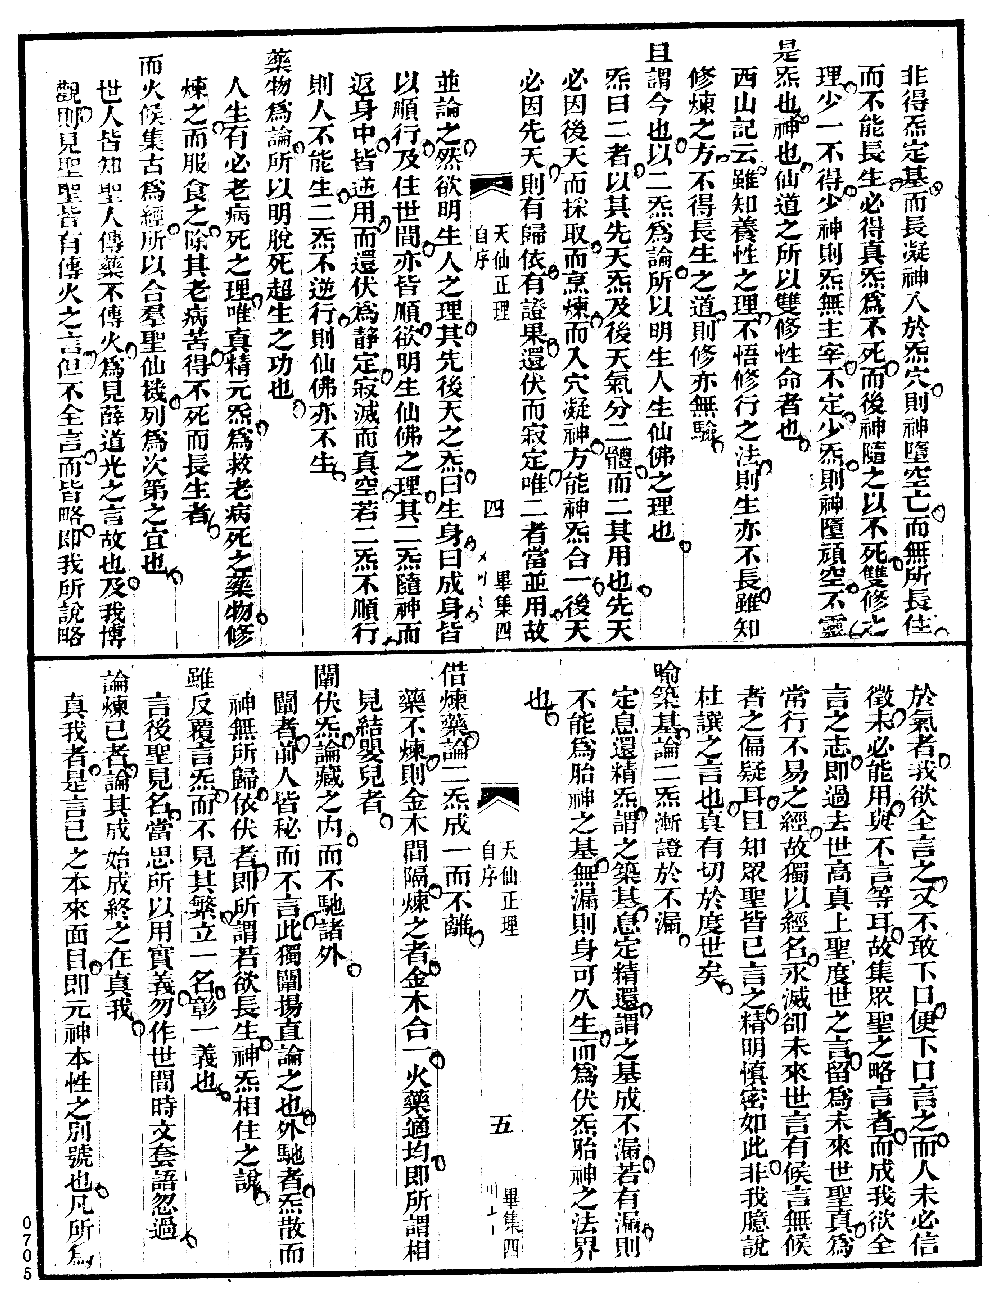 非得炁定基而長凝神入於炁穴則神墮空亡而無所長住
而不能長生必得真炁為不死而後神隨之以不死雙修之
理少一不得少神則炁無主宰不定少炁則神墮頑空不靈
是炁也神也仙道之所以雙修性命者也
西山記云雖知養性之理不悟修行之法則生亦不長雖知
修煉之方不得長生之道則修亦無驗
且謂今也以二炁為論所以明生人生仙佛之理也
炁曰二者以其先天炁及後天氣分二體而二其用也先天
必因後天而採取而烹煉而入穴凝神方能神炁合一後天
必因先天則有歸依有證果還伏而寂定唯二者當並用故
天仙正理
自序
四
畢集四
並論之然欲明生人之理其先後天之炁曰生身曰成身皆
以順行及住世間亦皆順欲明生仙佛之理其二炁隨神而
返身中皆逆用而還伏為靜定寂滅而真空若二炁不順行
則人不能生二炁不逆行則仙佛亦不生
藥物為論所以明脫死超生之功也
人生有必老病死之理唯真精元炁為救老病死之藥物修
煉之而服食之除其老病苦得不死而長生者
而火候集古為經所以合羣聖仙機列為次第之宜也
世人皆知聖人傳藥不傳火為見薛道光之言故也及我博
觀則見聖聖皆有傳火之言但不全言而皆略即我所說略
於氣者我欲全言之又不敢下口便下口言之而人未必信
徵未必能用與不言等耳故集眾聖之略言者而成我欲全
言之志即過去世高真上聖度世之言留為未來世聖真為
常行不易之經故獨以經名永滅卻未來世言有候言無候
者之偏疑耳且知眾聖皆已言之精明慎密如此非我臆說
杜譔之言也真有切於度世矣
喻築基論二炁漸證於不漏
定息還精炁謂之築基息定精還謂之基成不漏若有漏則
不能為胎神之基無漏則身可久生而為伏炁胎神之法界
也
天仙正理
自序
五
畢集四
借煉藥論二炁成一而不離
藥不煉則金木間隔煉之者金木合一火藥適均即所謂相
見結嬰兒者
闡伏炁論藏之內而不馳諸外
闡者前人皆秘而不言此獨闡揚直論之也外馳者炁散而
神無所歸依伏者即所謂若欲長生神炁相住之說
雖反覆言炁而不見其繁立一名彰一義也
言後聖見名當思所以用實義勿作世間時文套語忽過
論煉己者論其成始成終之在真我
真我者是言己之本來面目即元神本性之別號也凡所為
0705